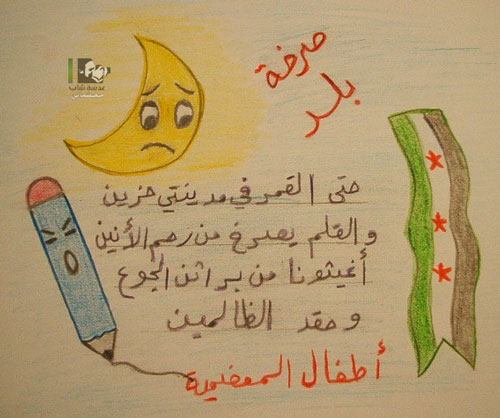 صرخة
بلد
عدسة شاب
حتى القمر في مدينتي حزين
والقلم يصرخ من رحم الأنين
أغيثونا من براثن الجوع
وحقد الظالمين
أطفال المعضمية